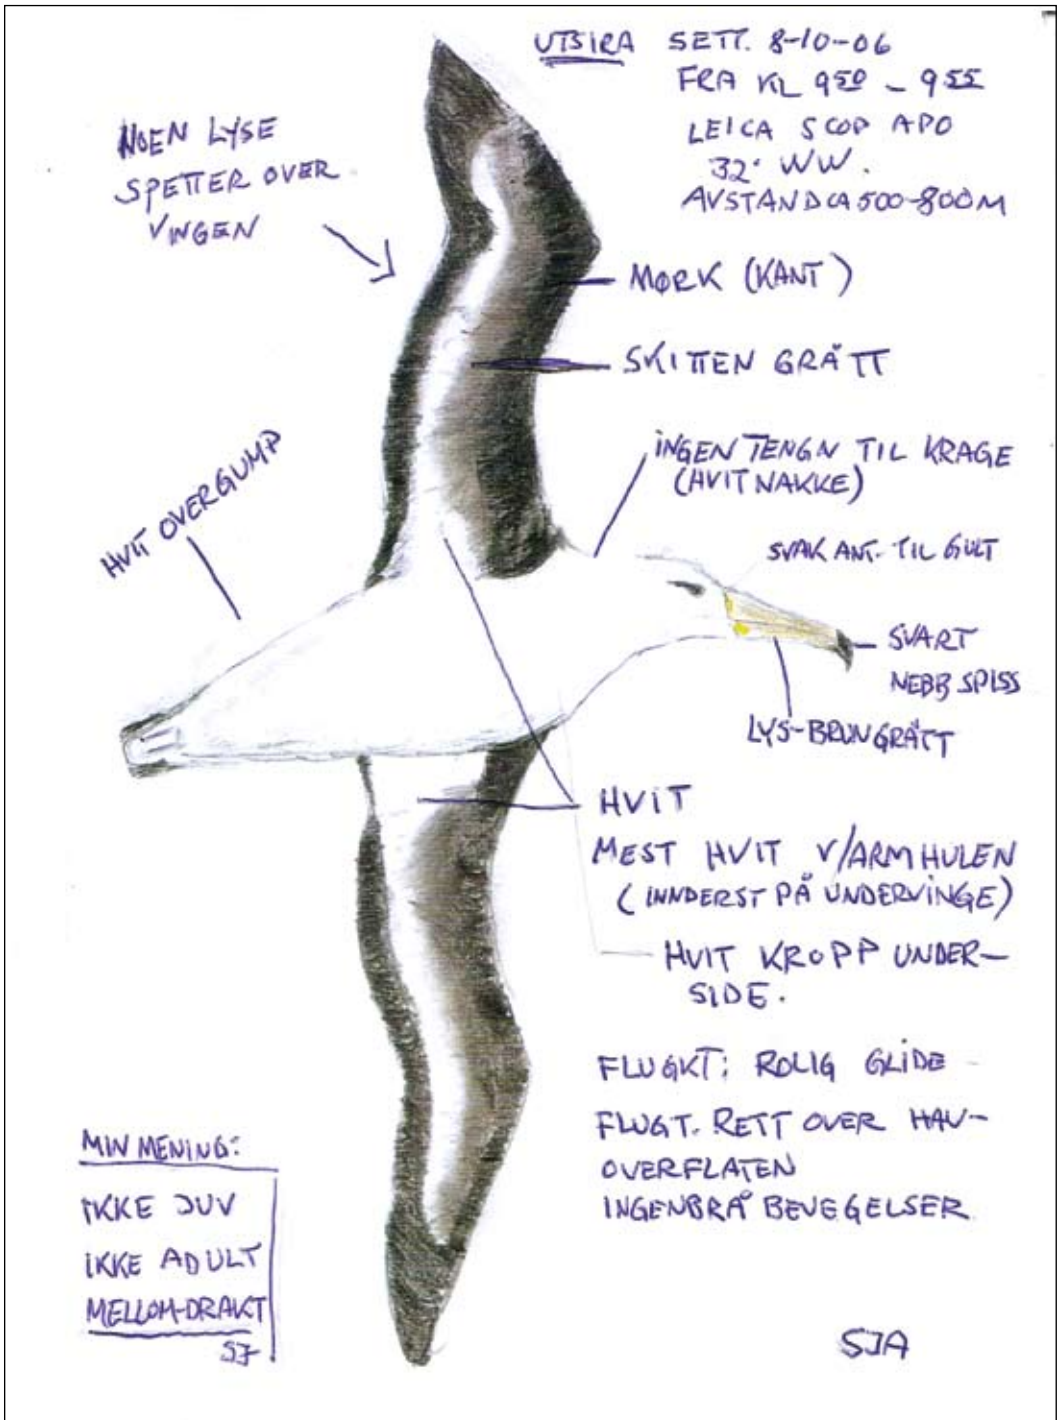 UTSIRA SETT. 8-10-06
FRA KL 9 50 - 9 55
LEICA SCOP APO
32· WW.
AVSTAND CA 500-800M
NOEN LYSE
SPETTER OVER
VINGEN
MØRK (KANT)
SKITTEN GRÅTT
INGEN TENGN TIL KRAGE
(HVIT NAKKE)
HVIT OVERGUMP
SVAK ANT. TIL GULT
SVART
NEBB SPISS
LYS-BRUNGRÅTT
HVIT
MEST HVIT V/ARMHULEN
(INNDERST PÅ UNDERVINGE)
HVIT KROPP UNDER-
SIDE.
FLUGKT: ROLIG GLIDE
FLUGT. RETT OVER HAV-
OVERFLATEN
INGEN BRÅ BEVEGELSER
MIN MENING:
IKKE JUV
IKKE ADULT
MELLOM-DRAKT
SJ
SJA